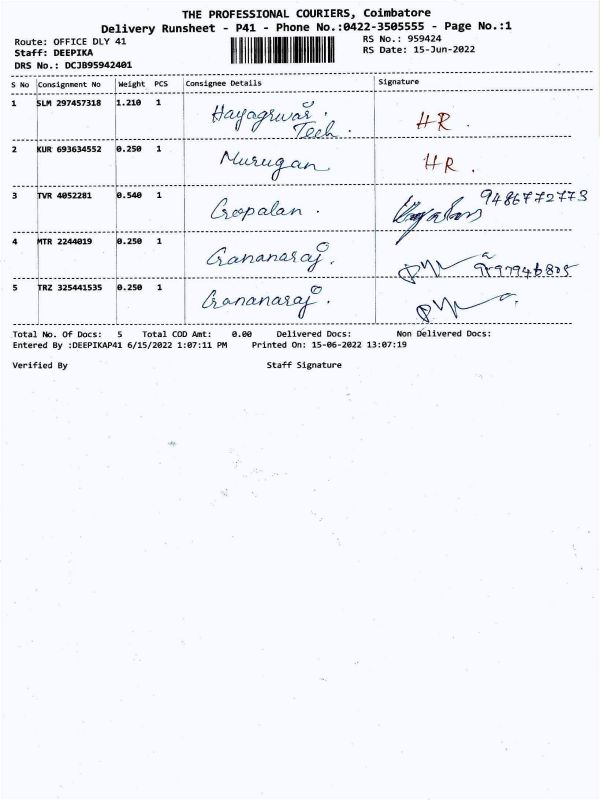 THE PROFESSIONAL COURIERS, Coimbatore
Delivery Runsheet - P41 - Phone No.:0422-3505555 - Page No.:1
Route: OFFICE DLY 41 RS No.: 959424
Staff: DEEPIKA RS Date: 15-Jun-2022
DRS No.: DCJB95942401
S No Consignment No Weight PCS Consignee Details Signature
1 SLM 297457318 1.210 1 Hayagrivar. HR.
Tech.
2 KUR 693634552 0.250 1 Murugan HR.
3 TVR 4052281 0.540 1 Gopalan. 9486772773
4 MTR 2244019 0.250 1 Gananaraj.
5 TRZ 325441535 0.250 1 Gananaraj.
Total No. Of Docs: 5 Total COD Amt: 0.00 Delivered Docs: Non Delivered Docs:
Entered By :DEEPIKAP41 6/15/2022 1:07:11 PM Printed On: 15-06-2022 13:07:19
Verified By Staff Signature